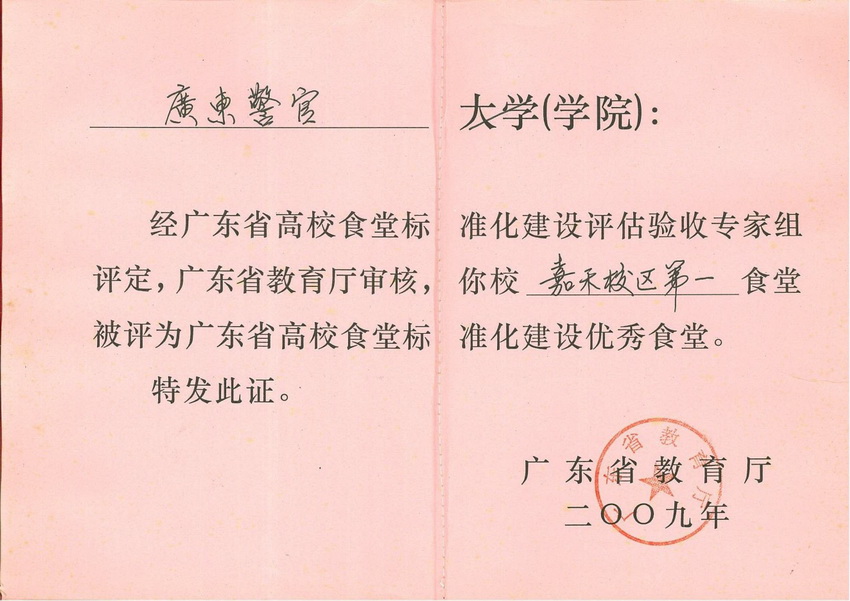 廣東警官 大学(学院):
经广东省高校食堂标准化建设评估验收专家组
评定,广东省教育厅审核,你校 嘉禾校区第一 食堂
被评为广东省高校食堂标准化建设优秀食堂。
特发此证。
广东省教育厅
二〇〇九年
广东省教育厅